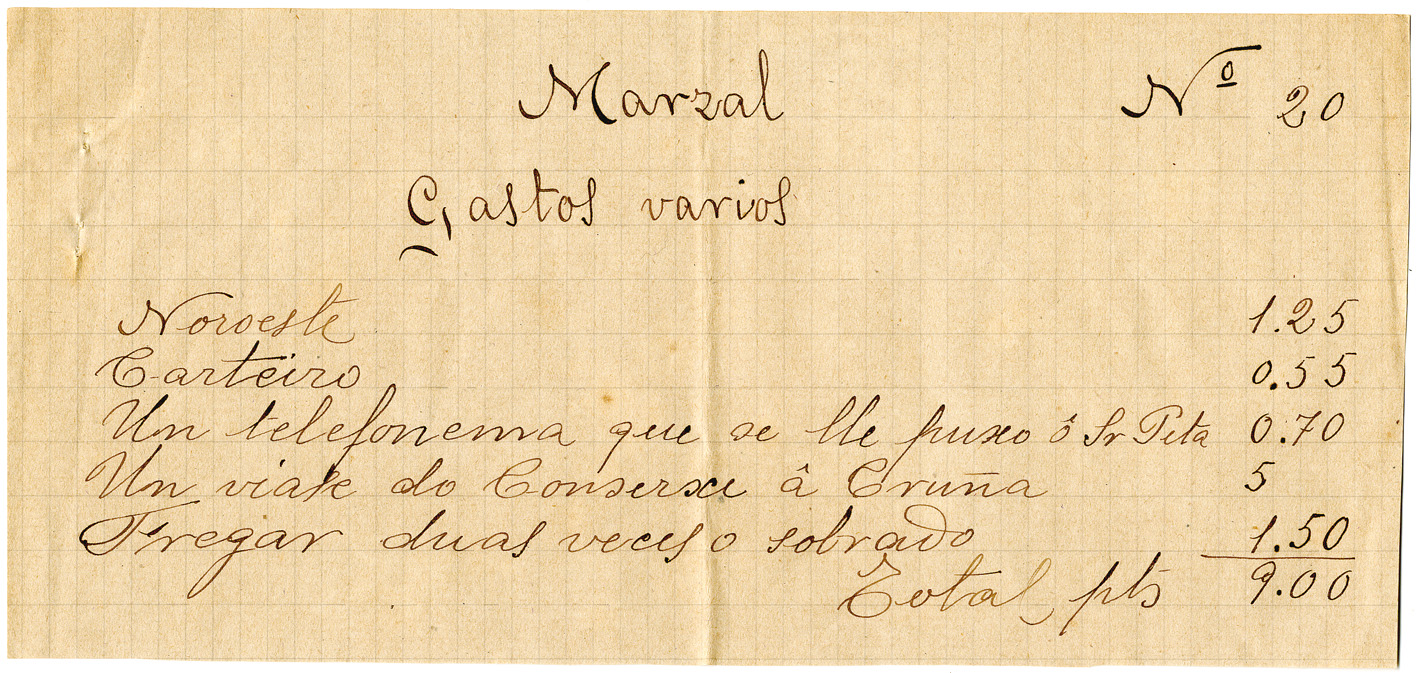 Marzal Nº 20
Gastos varios
Noroeste 1.25
Carteiro 0.55
Un telefonema que se lle puxo ô Sr Pita 0.70
Un viaxe do Conserxe â Cruña 5
Fregar duas veces o sobrado 1.50
Total, pts 9.00